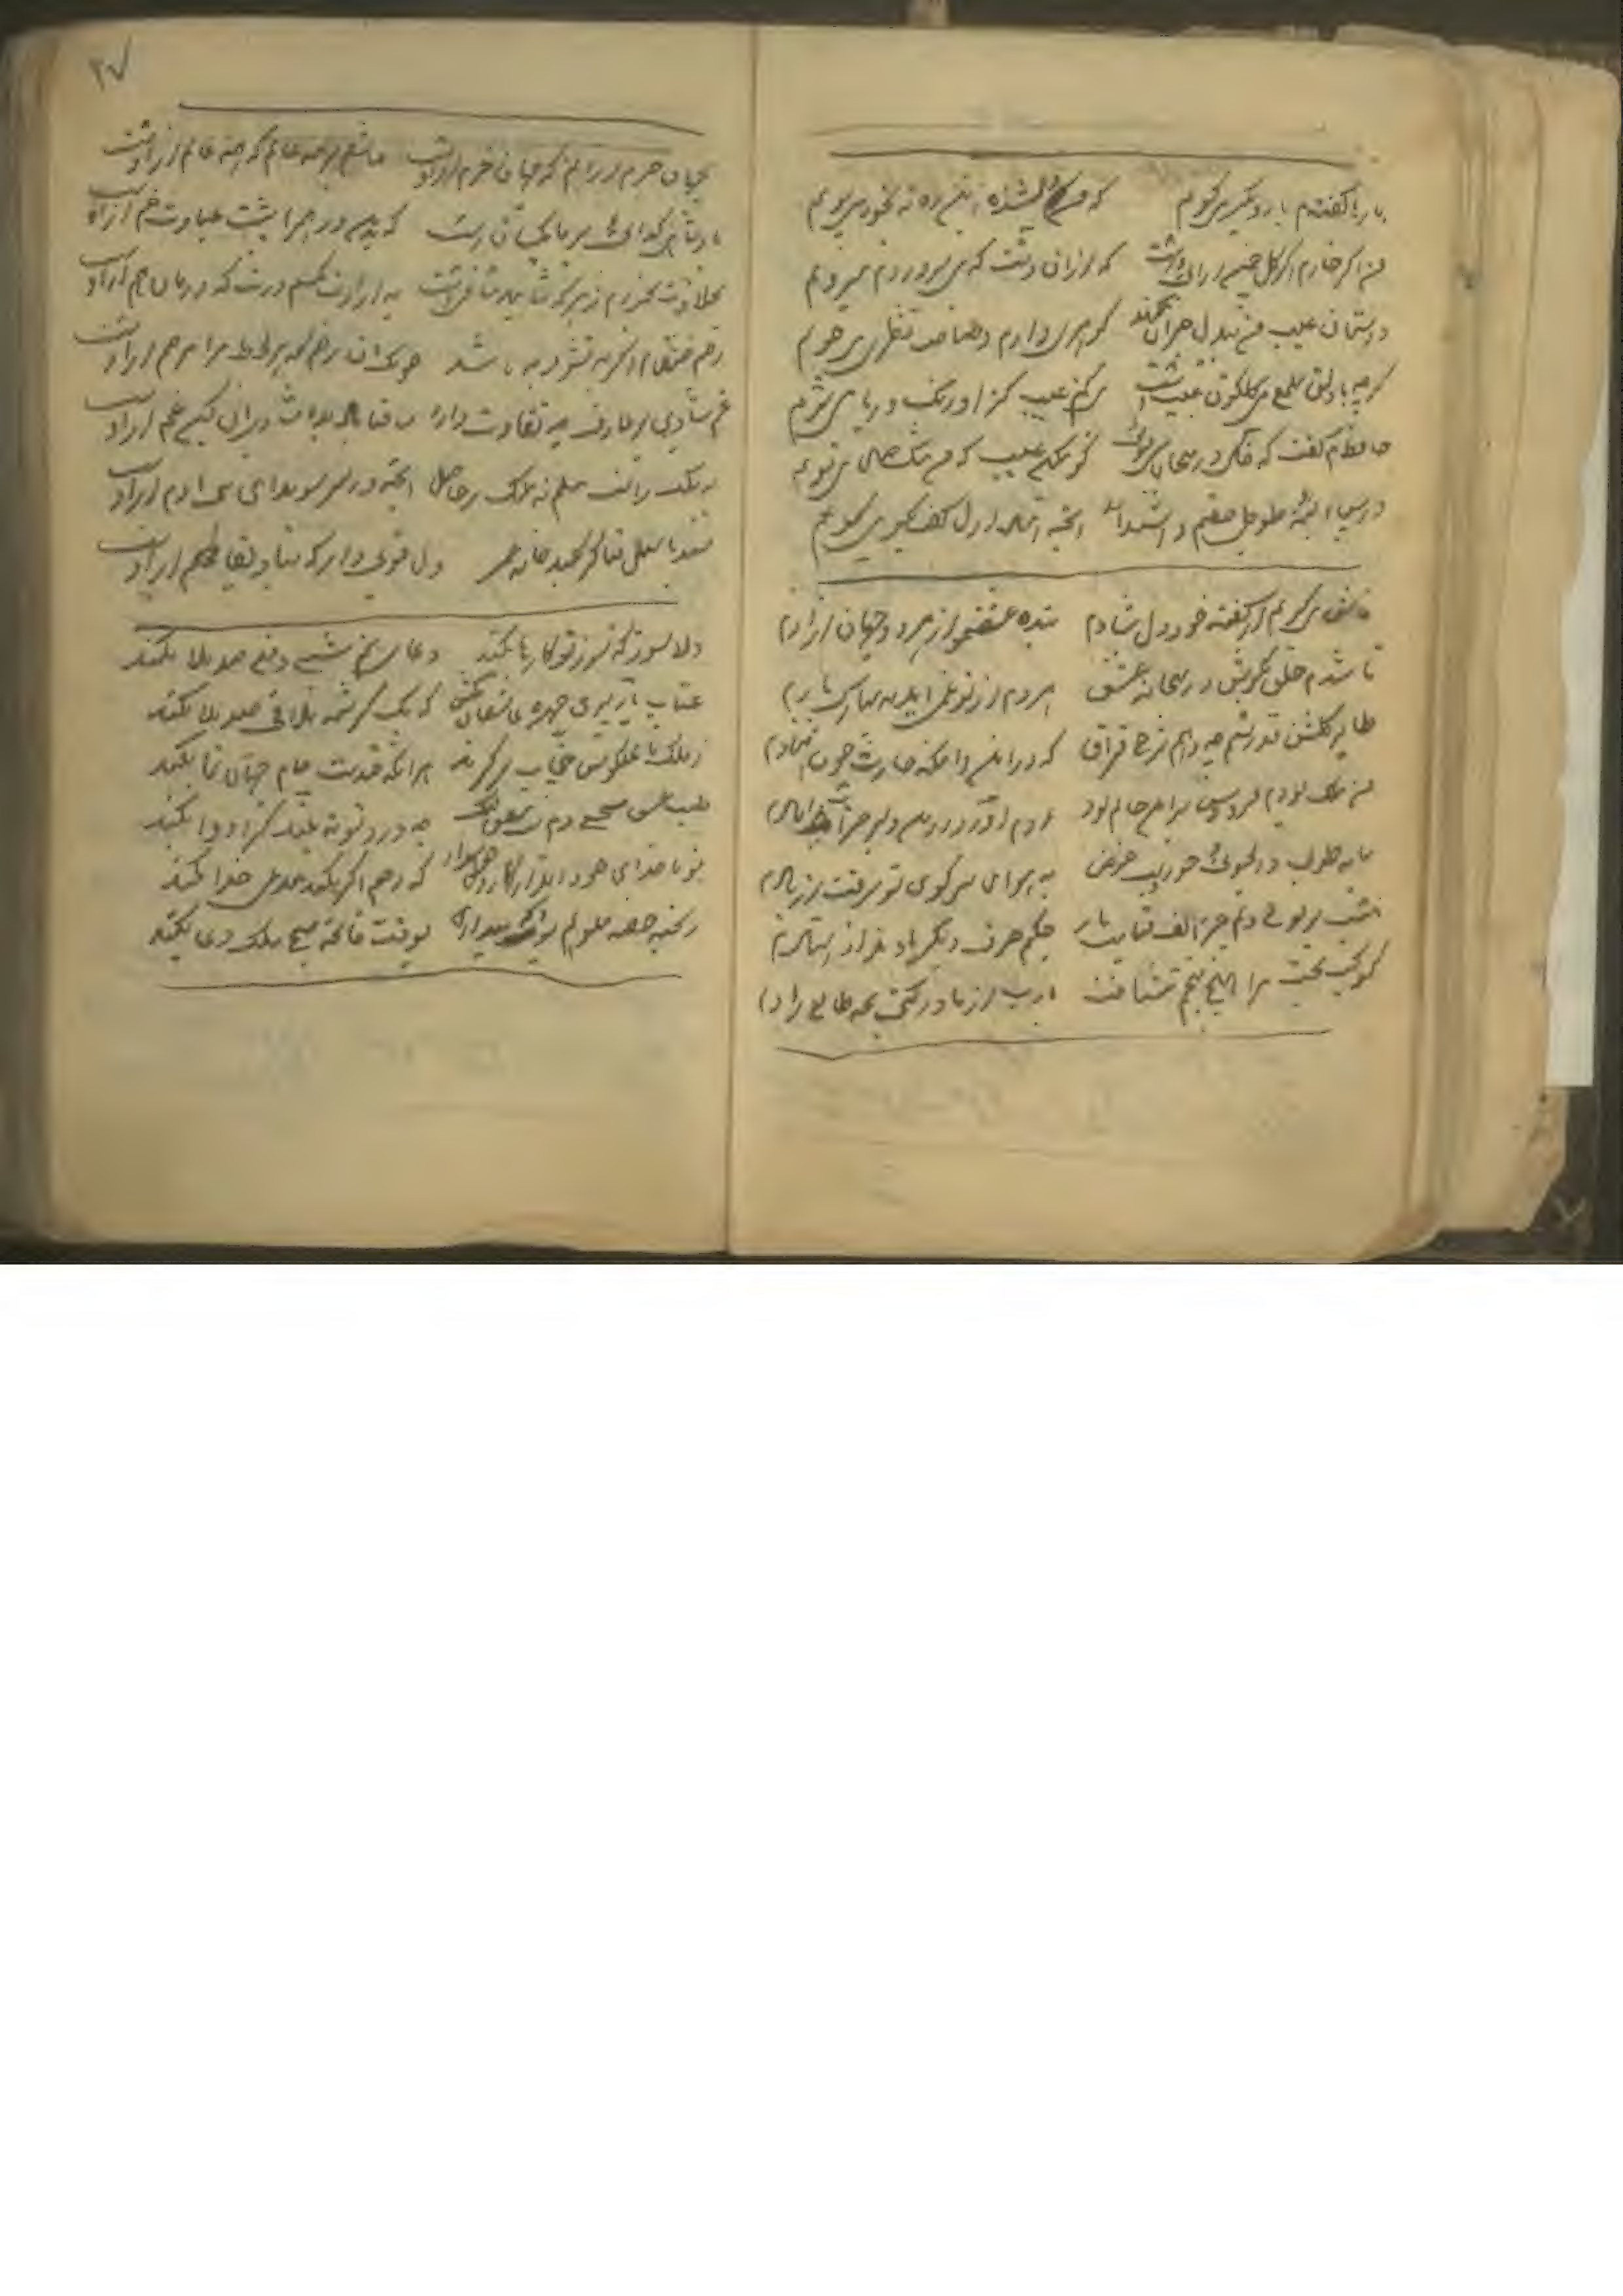 بارها گفته‌ام بار دگر می‌گویم که من گمشده این ره نه بخود می‌پویم
من اگر خارم اگر گل چمن ارائی هست که از آن دست که می‌پروردم میرویم
دوستان عیب من بیدل حیران مکنید گوهری دارم و صاحب نظری می‌جویم
گرچه با دلق ملمع می گلگون عیب است مکنم عیب کزو رنگ و ریا می‌شویم
حافظم گفت که خاک در میخانه مبوی گو مکن عیب که من مشک ختن می‌بویم
در پس آینه طوطی صفتم داشته‌اند آنچه استاد ازل گفت بگو می‌گویم
فاش می‌گویم و از گفته خود دلشادم بنده عشقم و از هر دو جهان آزادم
تا شدم حلقه بگوش در میخانه عشق هر دم از نو غمی آید به مبارکبادم
طایر گلشن قدسم چه دهم شرح فراق که در این دامگه حادثه چون افتادم
من ملک بودم و فردوس برین جایم بود آدم آورد در این دیر خراب آبادم
سایه طوبی و دلجوئی حور و لب حوض به هوای سر کوی تو برفت از یادم
نیست بر لوح دلم جز الف قامت یار چکنم حرف دگر یاد نداد استادم
کوکب بخت مرا هیچ منجم نشناخت یارب از مادر گیتی بچه طالع زادم
۲۷
بجهان خرم از آنم که جهان خرم ازوست عاشقم بر همه عالم که همه عالم ازوست
بحلاوت بخورم زهر که شاهد ساقیست به ارادت بکشم درد که درمان هم ازوست
زخم خونینم اگر به نشود به باشد خنک آن زخم که هر لحظه مرا مرهم ازوست
غم و شادی بر عارف چه تفاوت دارد ساقیا باده بده شادی آن کین غم ازوست
نه فلک راست مسلم نه ملک را حاصل آنچه در سر سویدای بنی آدم ازوست
دلا بسوز که سوز تو کارها بکند دعای نیم شبی دفع صد بلا بکند
عتاب یار پری چهره عاشقانه بکش که یک کرشمه تلافی صد بلا بکند
ز ملک تا ملکوتش حجاب برگیرند هر آنکه خدمت جام جهان نما بکند
طبیب عشق مسیحا دم است و مشفق لیک چو درد در تو نبیند کرا دوا بکند
تو با خدای خود انداز کار و دل خوش دار که رحم اگر نکند مدعی خدا بکند
ز بخت خفته ملولم بود که بیداری بوقت فاتحه صبح یک دعا بکند